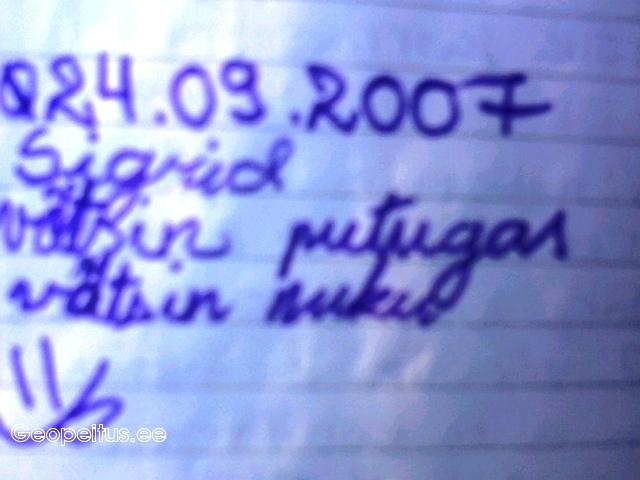 24.09.2007
Sigrid
võtsin putugas
võtsin nuku
Geopeitus.ee